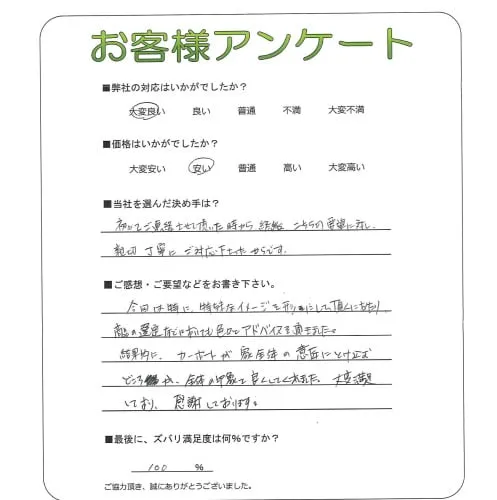 お客様アンケート
■弊社の対応はいかがでしたか?
大変良い 良い 普通 不満 大変不満
■価格はいかがでしたか?
大変安い 安い 普通 高い 大変高い
■当社を選んだ決め手は?
初めてご連絡させて頂いた時から 終始 こちらの要望に対し、
親切 丁寧に ご対応下さったからです。
■ご感想・ご要望などをお書き下さい。
今回は特に、特殊なイメージを形にして頂くにあたり、
商品の選定 色々とアドバイスを頂きました。
結果的に、カーポートが 家全体の 意匠に とけ込む
どころか、全体の印象を良くしてくれました。大変満足
しており、感謝しております。
■最後に、ズバリ満足度は何%ですか?
100 %
ご協力頂き、誠にありがとうございました。